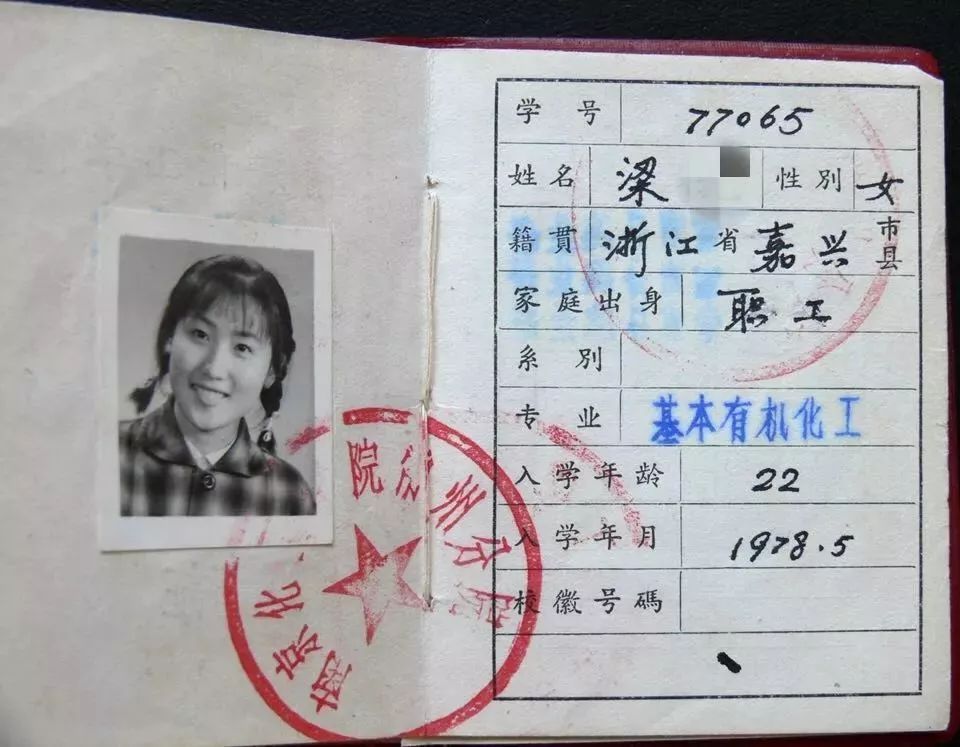 学号 77065
姓名 梁 性別 女
籍貫 浙江省嘉兴市县
家庭出身 职工
系別
专业 基本有机化工
入学年龄 22
入学年月 1978.5
校徽号碼
南京化
院
州分院